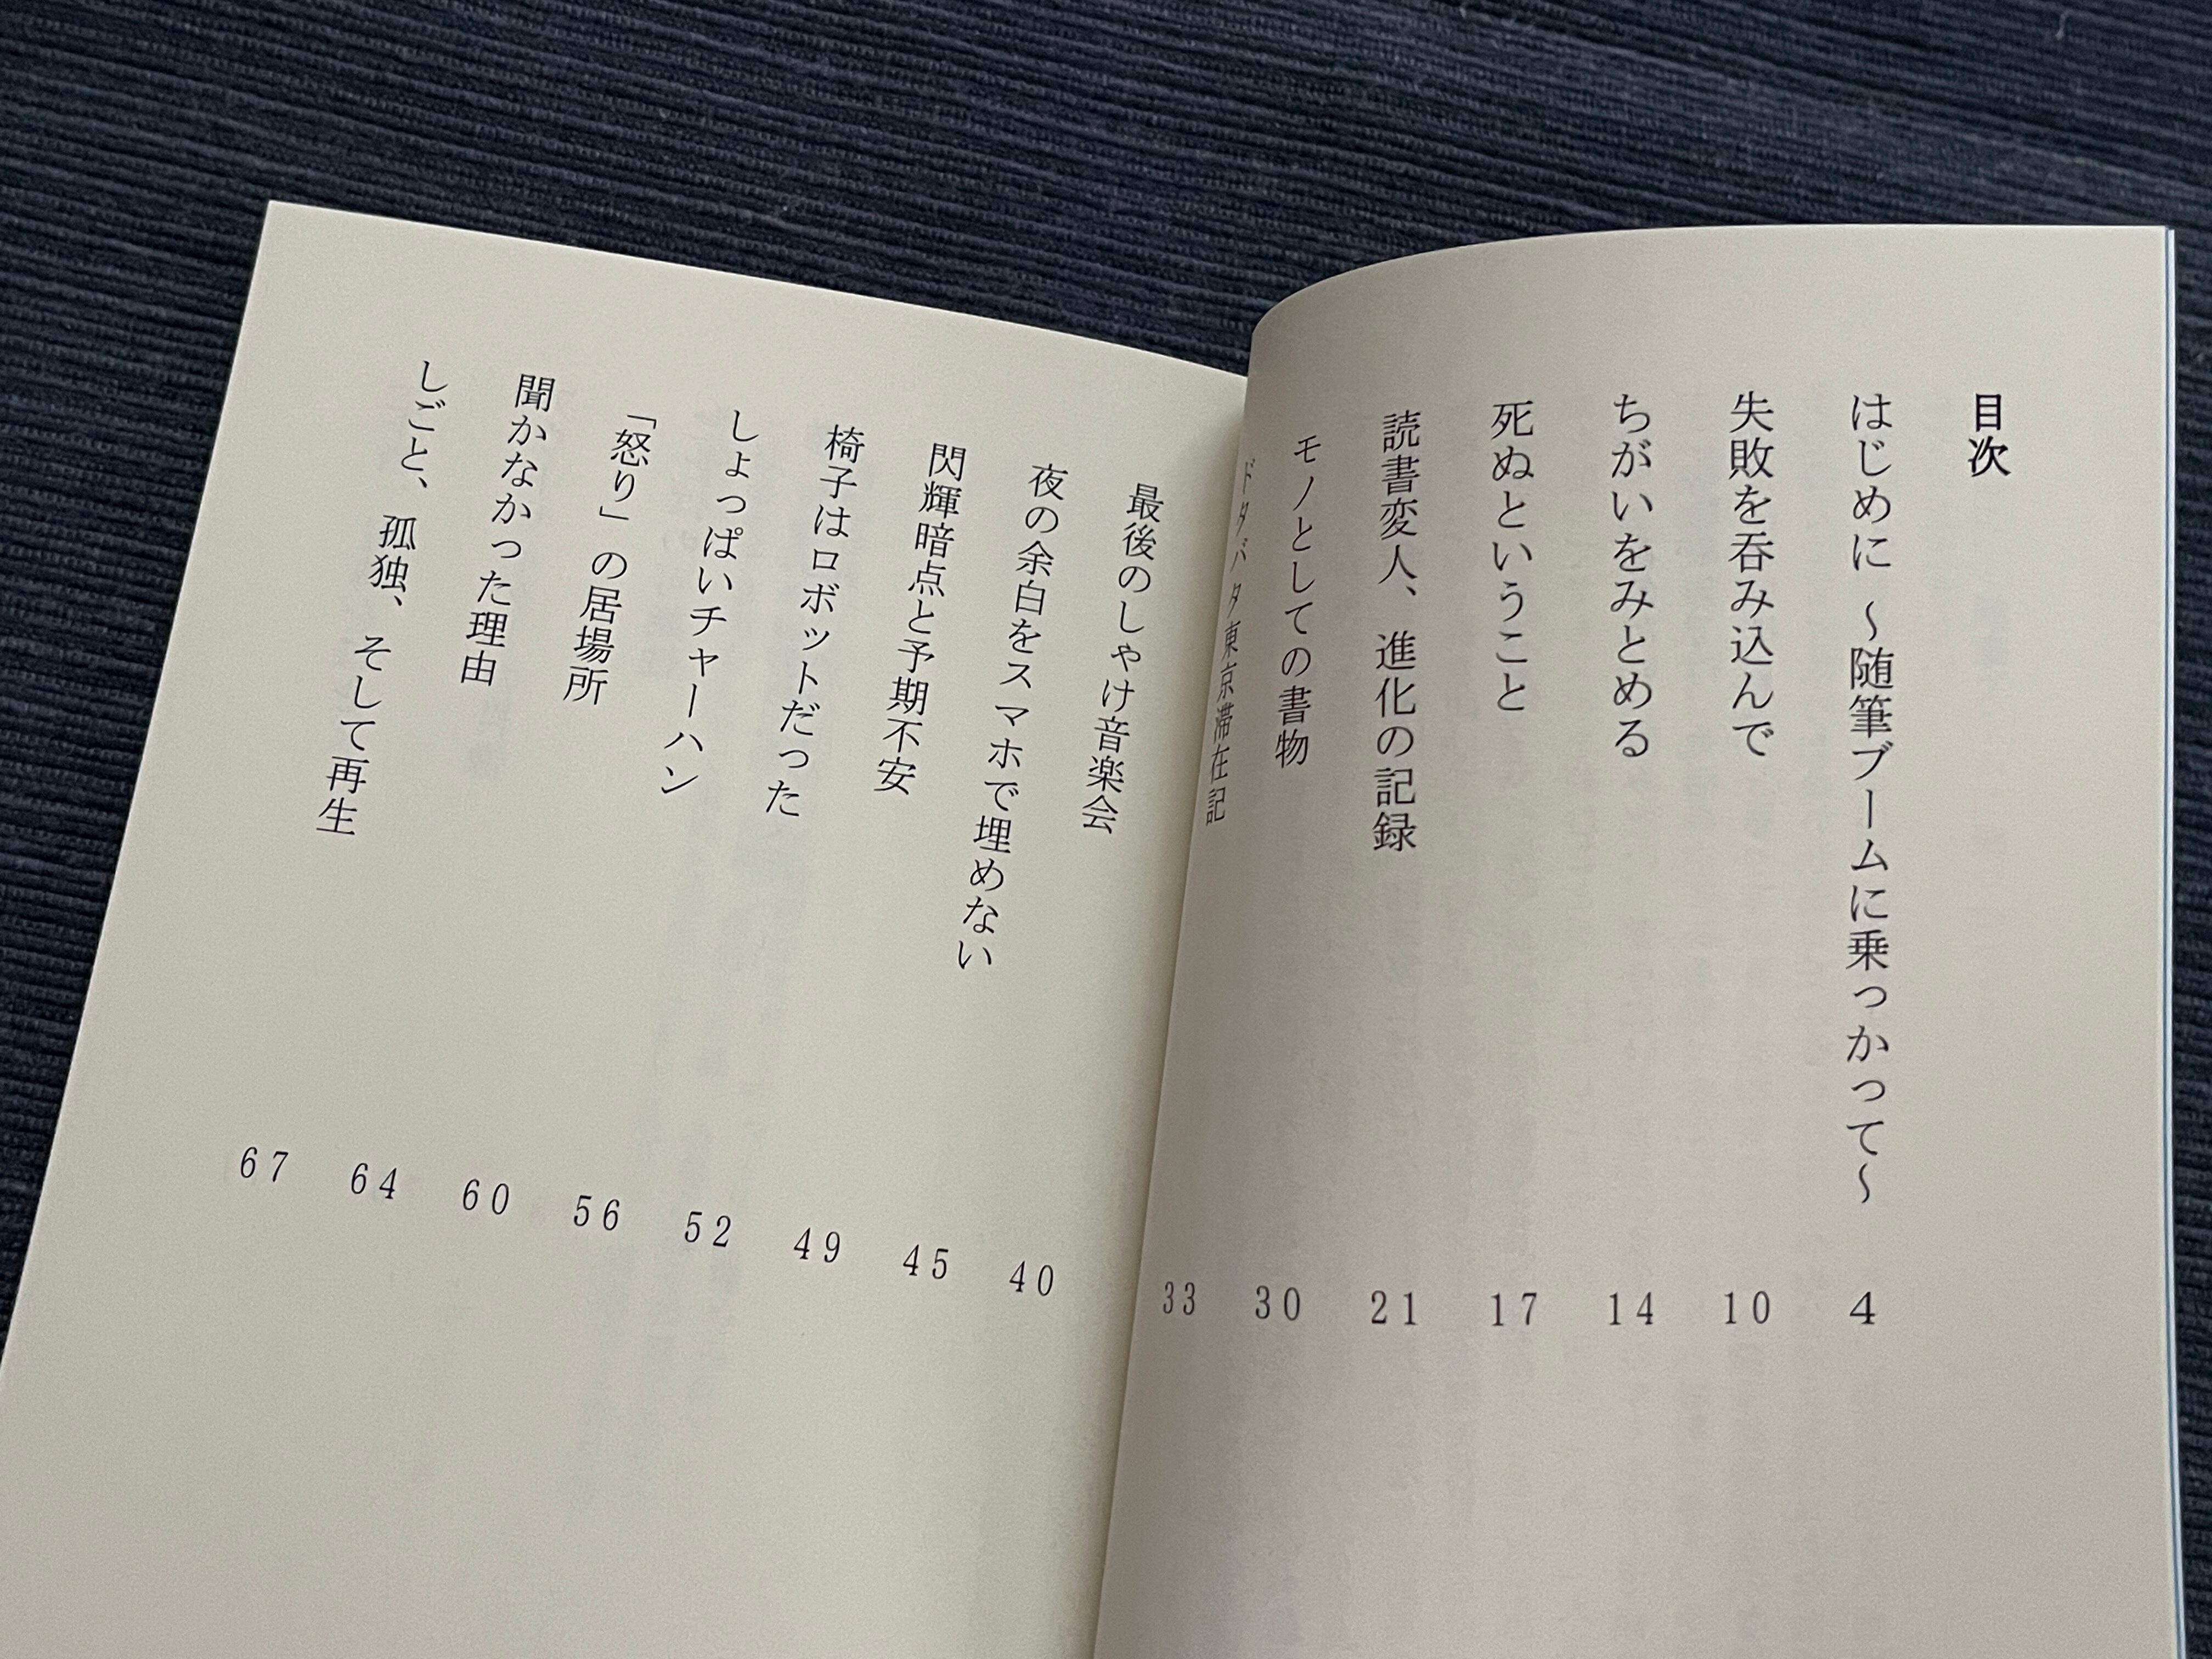 目次
はじめに ～随筆ブームに乗っかって～ 4
失敗を呑み込んで 10
ちがいをみとめる 14
死ぬということ 17
読書変人、進化の記録 21
モノとしての書物 30
ドタバタ東京滞在記 33
最後のしゃけ音楽会 40
夜の余白をスマホで埋めない 45
閃輝暗点と予期不安 49
椅子はロボットだった 52
しょっぱいチャーハン 56
「怒り」の居場所 60
聞かなかった理由 64
しごと、孤独、そして再生 67